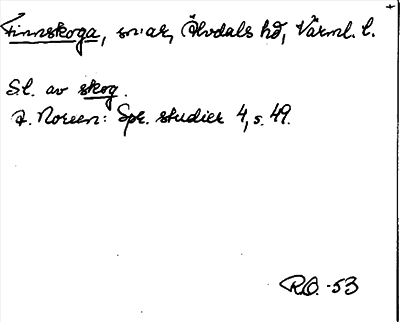 Finnskoga, sn, Älvdals hd, Värml. l.
St. av skog.
A. Noreen: Spr. studier 4, s. 49.
R.O. -53